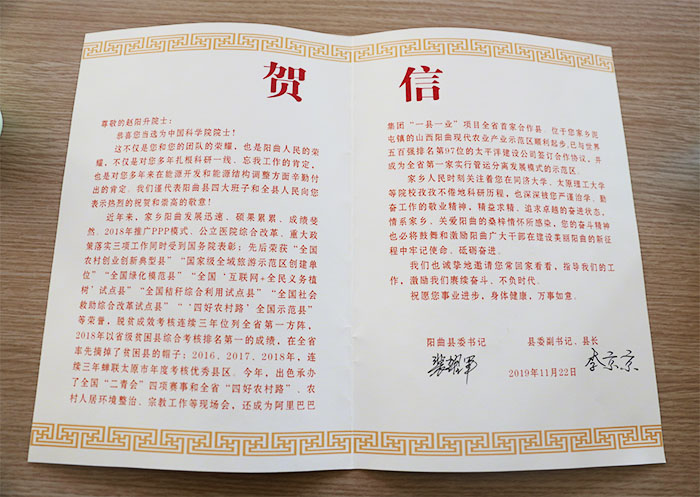 贺信
尊敬的赵阳升院士：
恭喜您当选为中国科学院院士！
这不仅是您和您的团队的荣耀，也是阳曲人民的荣
耀，不仅是对您多年扎根科研一线、忘我工作的肯定，
也是对您多年来在能源开发和能源结构调整方面辛勤付
出的肯定。我们谨代表阳曲县四大班子和全县人民向您
表示热烈的祝贺和崇高的敬意！
近年来，家乡阳曲发展迅速、硕果累累、成绩斐
然。2018年推广PPP模式、公立医院综合改革、重大政
策落实三项工作同时受到国务院表彰；先后荣获“全国
农村创业创新典型县”“国家级全域旅游示范区创建单
位”“全国绿化模范县”“全国‘互联网+全民义务植
树’试点县”“全国秸秆综合利用试点县”“全国社会
救助综合改革试点县”“‘四好农村路’全国示范县”
等荣誉，脱贫成效考核连续三年位列全省第一方阵，
2018年以省级贫困县综合考核排名第一的成绩，在全省
率先摘掉了贫困县的帽子；2016、2017、2018年，连
续三年蝉联太原市年度考核优秀县区。今年，出色承办
了全国“二青会”四项赛事和全省“四好农村路”、农
村人居环境整治、宗教工作等现场会，还成为阿里巴巴
集团“一县一业”项目全省首家合作县。位于您家乡西
屯镇的山西阳曲现代农业产业示范区顺利起步，已与世界
五百强排名第97位的太平洋建设公司签订合作协议，并
成为全省第一家实行管运分离发展模式的示范区。
家乡人民时刻关注着您在同济大学、太原理工大学
等院校孜孜不倦地科研历程，也深深被您严谨治学、勤
奋工作的敬业精神，精益求精、追求卓越的奋进状态，
情系家乡、关爱阳曲的桑梓情怀所感染，您的奋斗精神
也必将鼓舞和激励阳曲广大干部在建设美丽阳曲的新征
程中牢记使命、砥砺奋进。
我们也诚挚地邀请您常回家看看，指导我们的工
作，激励我们赓续奋斗、不负时代。
祝愿您事业进步，身体健康，万事如意。
阳曲县委书记 县委副书记、县长
裴耀军 李京京
2019年11月22日